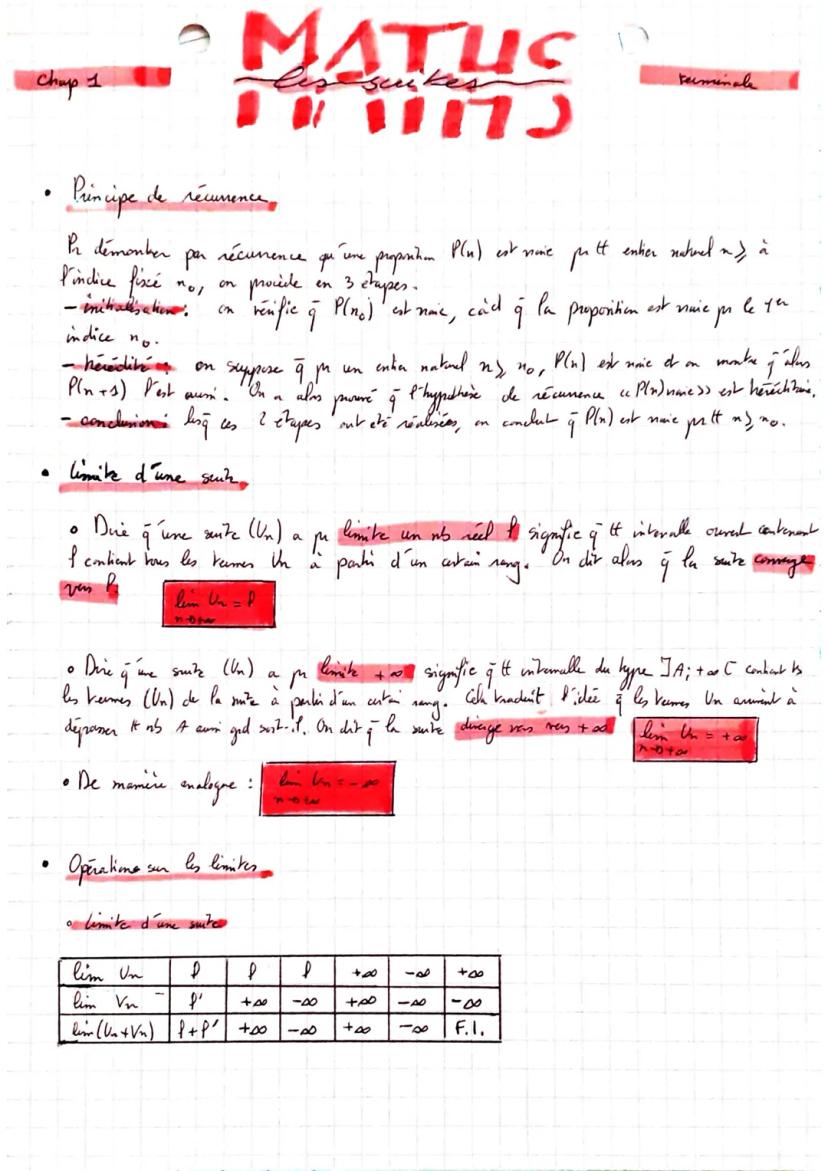 Chap 1
MATHS
les suites
terminale
• Principe de récurrence
Pr démontrer par récurrence qu'une proposition P(n) est vraie pr tt entier naturel n ⩾ à
l'indice fixé n₀, on procède en 3 étapes.
- initialisation : on vérifie q̄ P(n₀) est vraie, càd q̄ la proposition est vraie pr le 1er
indice n₀.
- hérédité : on suppose q̄ pr un entier naturel n ⩾ n₀, P(n) est vraie et on montre q'alors
P(n+1) l'est aussi. On a alors prouvé q̄ l'hypothèse de récurrence «P(n) vraie» est héréditaire.
- conclusion : lsq̄ ces 2 étapes ont été réalisées, on conclut q̄ P(n) est vraie pr tt n ⩾ n₀.
• Limite d'une suite
o Dire q̄ une suite (Un) a pr limite un nb réel l signifie q̄ tt intervalle ouvert contenant
l contient tous les termes Un à partir d'un certain rang. On dit alors q̄ la suite converge
vers l.
lim Un = l
n→+∞
o Dire q̄ une suite (Un) a pr limite +∞ signifie q̄ tt intervalle du type ]A; +∞[ contient ts
les termes (Un) de la suite à partir d'un certain rang. Cela traduit l'idée q̄ les termes Un arrivent à
dépasser tt nb A aussi grd soit-il. On dit q̄ la suite diverge vers vers +∞
lim Un = +∞
n→+∞
o De manière analogue :
lim Un = -∞
n→+∞
• Opérations sur les limites
o limite d'une suite
lim Un | l | l | l | +∞ | -∞ | +∞
lim Vn | l' | +∞ | -∞ | +∞ | -∞ | -∞
lim(Un+Vn) | l+l' | +∞ | -∞ | +∞ | -∞ | F.I.